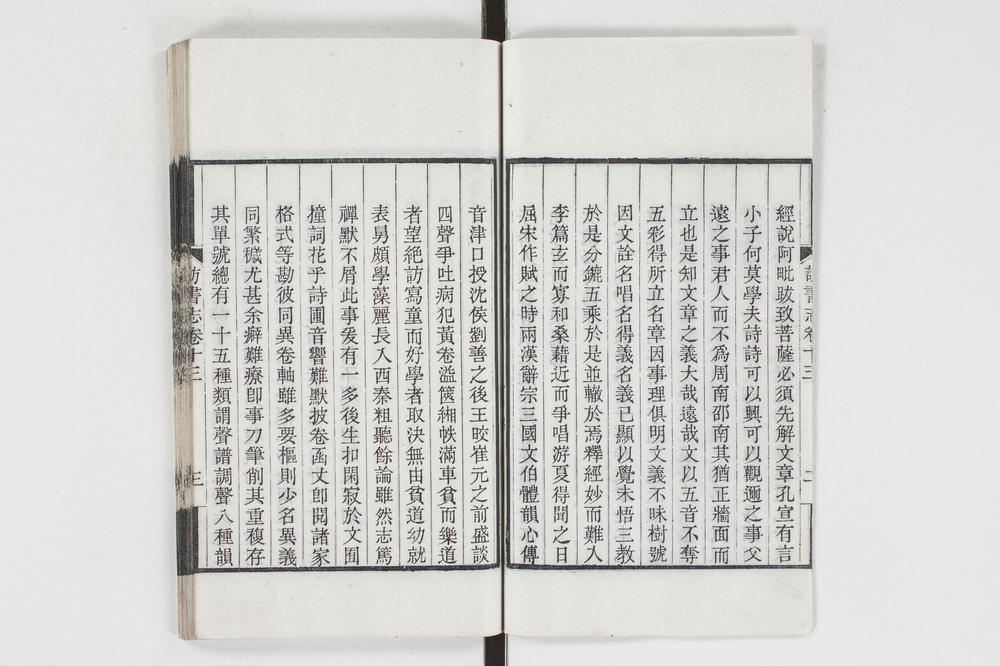 經說阿毗跋致菩薩必須先解文章孔宣有言
小子何莫學夫詩詩可以興可以觀邇之事父
遠之事君人而不爲周南邵南其猶正牆面而
立也是知文章之義大哉遠哉文以五音不奪
五彩得所立名章因事理俱明文義不昧樹號
因文詮名唱名得義名義已顯以覺未悟三教
於是分鑣五乘於是並轍於焉釋經妙而難入
李篇玄而寡和桑藉近而爭唱游夏得聞之日
屈宋作賦之時兩漢辭宗三國文伯體韻心傳
音津口授沈侯劉善之後王皎崔元之前盛談
四聲爭吐病犯黃卷溢篋緗帙滿車貧而樂道
者望絕訪寫童而好學者取決無由貧道幼就
表舅頗學藻麗長入西秦粗聽餘論雖然志篤
禪默不屑此事爰有一多後生扣閑寂於文囿
撞詞花乎詩圃音響難默披卷函丈卽閱諸家
格式等勘彼同異卷軸雖多要樞則少名異義
同繁穢尤甚余癖難療卽事刀筆削其重複存
其單號總有一十五種類謂聲譜調聲八種韻
訪書志卷十三
三